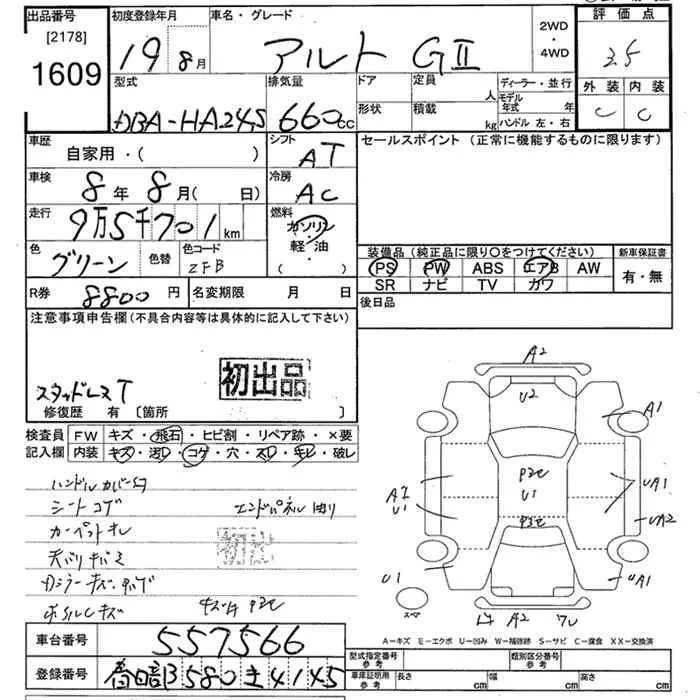 出品番号
[2178]
1609
初度登録年月
19 8月
車名・グレード
アルト GⅡ
2WD
・
4WD
評価点
3.5
外装 内装
C C
型式
DBA-HA24S
排気量
660cc
ドア
定員
人
形状
積載
kg
ディーラー・並行
モデル年式 年
ハンドル 左・右
車歴
自家用・( )
シフト
AT
セールスポイント (正常に機能するものに限ります)
車検
8年 8月( 日)
冷房
AC
走行
9万5千701km
燃料
ガソリン
・
軽・油
( )
色
グリーン
色替
色コード
ZFB
装備品 (純正品に限り〇をつけてください)
PS PW ABS エアB AW
SR ナビ TV カワ
新車保証書
有・無
R券 8800円
名変期限 月 日
後日品
注意事項申告欄(不具合内容等は具体的に記入して下さい)
スタッドレスT
初出品
修復歴 有 [箇所 ]
検査員
記入欄
FW キズ・飛石・ヒビ割・リペア跡・×要
内装 キズ・汚レ・コゲ・穴・スレ・キレ・破レ
シートコゲ
エンドパネル
A2
U2
A1
P3C
U1
P3C
UA1
UA2
U1
UA1
A2
スペア
A=キズ E=エクボ U=凹み W=補修跡 S=サビ C=腐食 XX=交換済
車台番号 557566
登録番号 春日部 580 き 4145
型式指定番号
参考
類別区分番号
参考
車庫証明用
参考
長さ cm
幅 cm
高さ cm